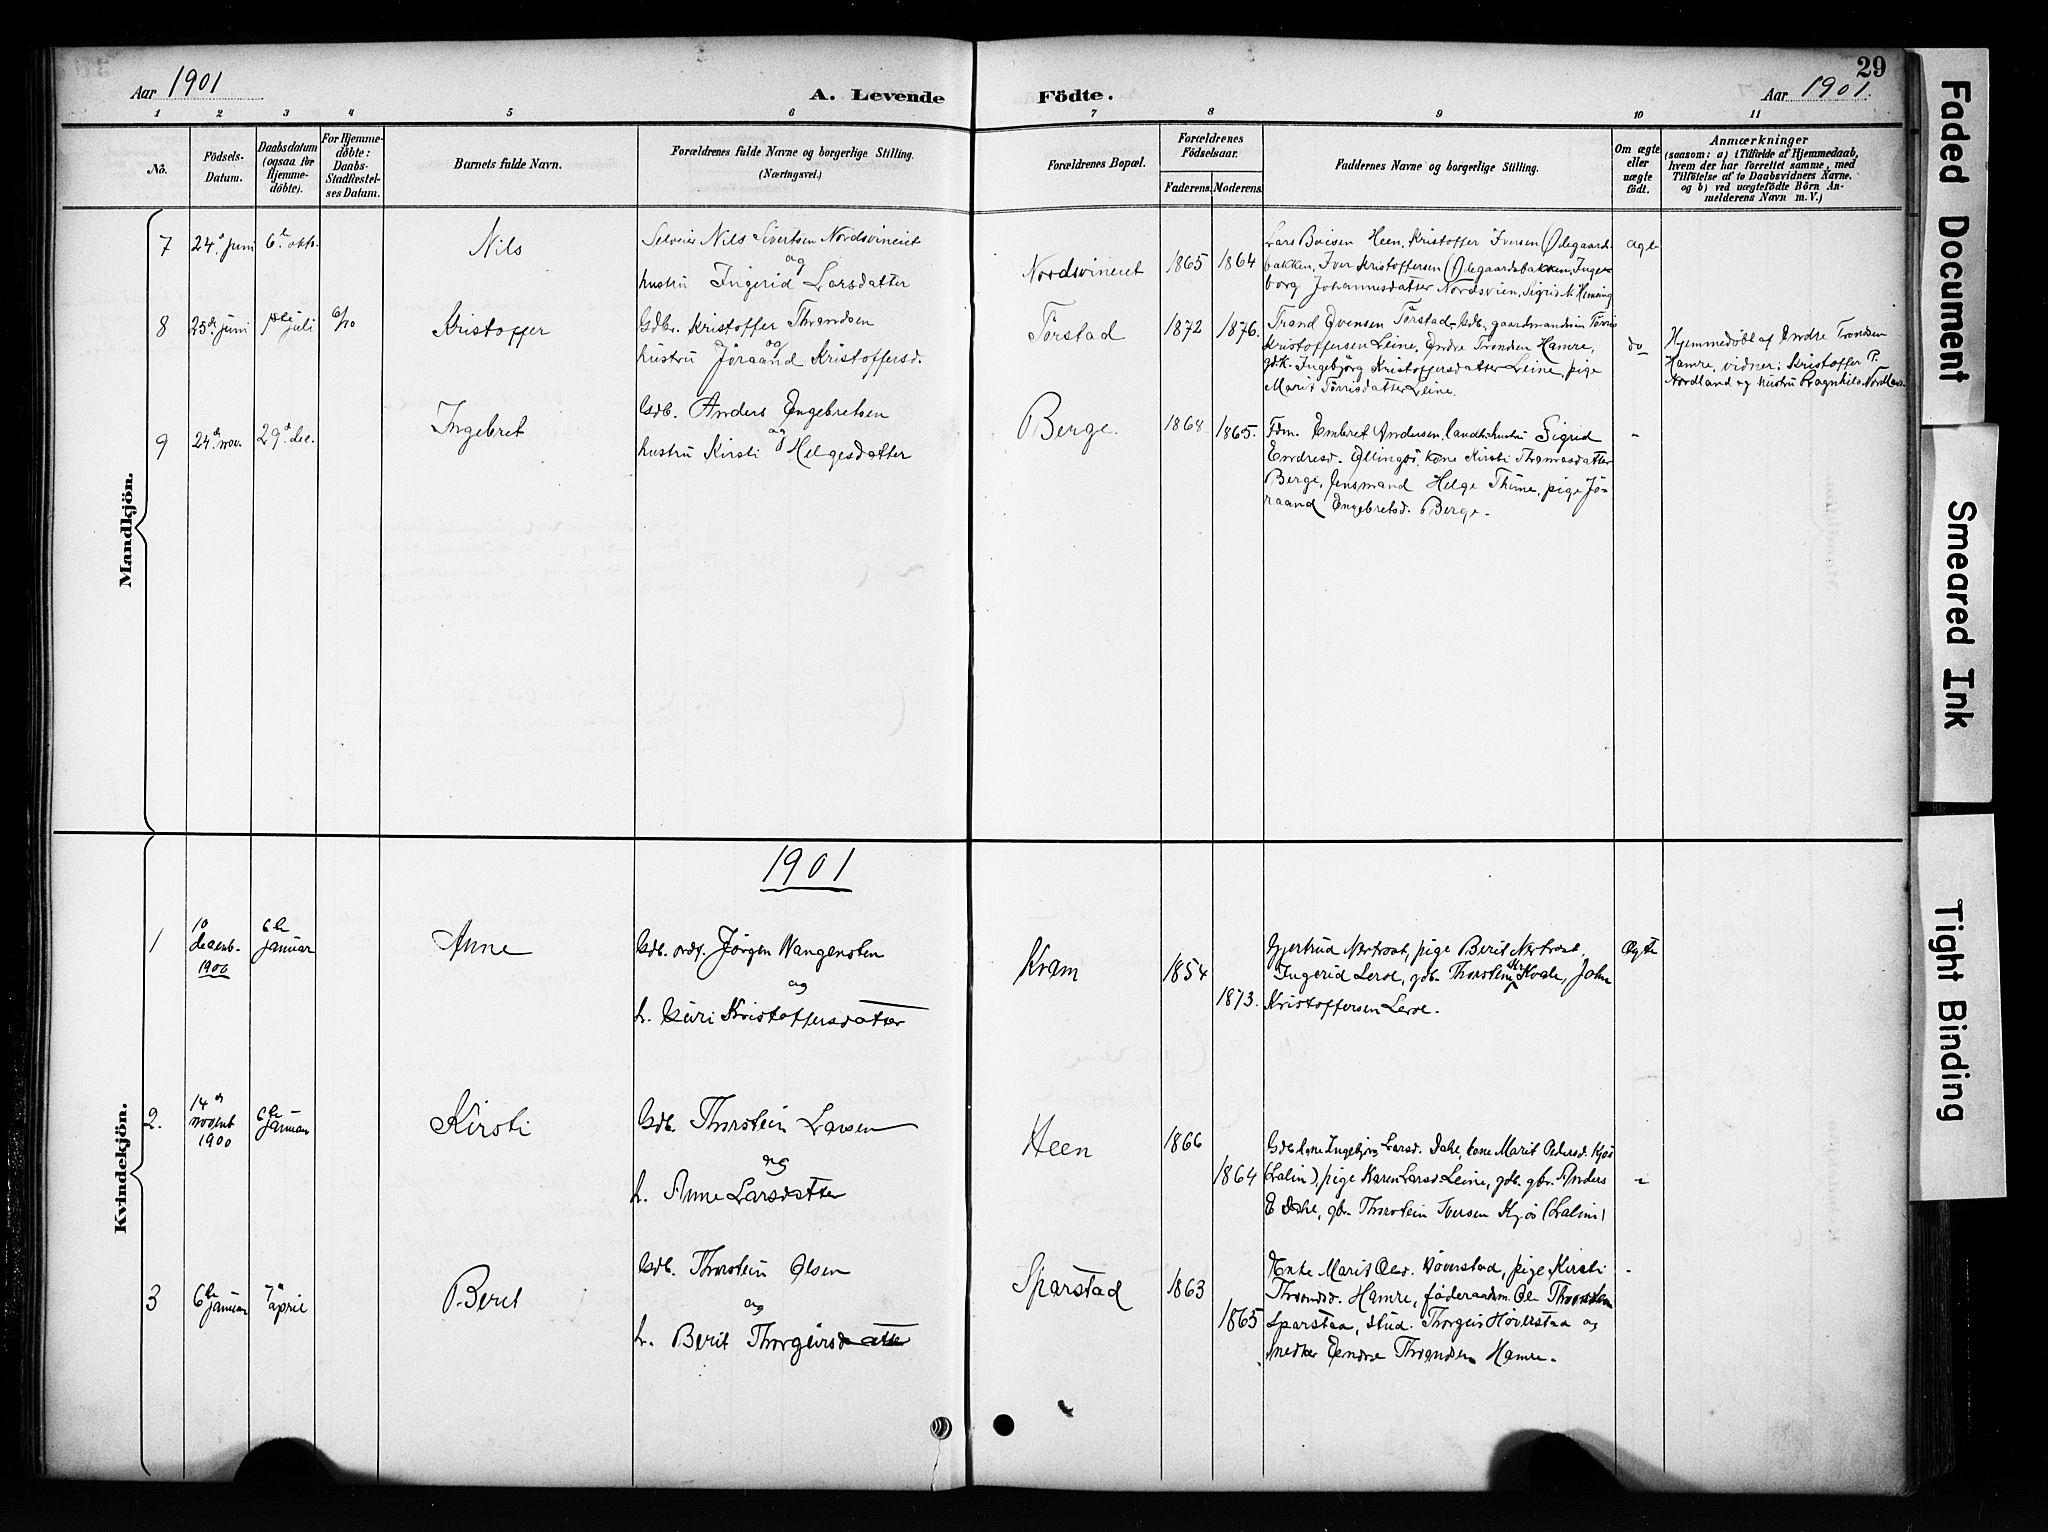 29
Aar 1901
A. Levende Födte.
Aar 1901.
1 2 3 4 5 6 7 8 9 10 11
No.
Födsels-
Datum.
Daabsdatum
(ogsaa for
Hjemme-
døbte).
For Hjemme-
døbte:
Daabs-
Stadfæstel-
ses Datum.
Barnets fulde Navn.
Forældrenes fulde Navne og borgerlige Stilling.
(Næringsvei.)
Forældrenes Bopæl.
Forældrenes
Födselsaar.
Faderens. Moderens.
Faddernes Navne og borgerlige Stilling.
Om ægte
eller
uægte
født.
Anmærkninger
(saasom: a) i Tilfælde af Hjemmedaab,
hvem der har forrettet samme, med
Tilföielse af to Daabsvidners Navne.
og b) ved uægtefödte Börn An-
melderens Navn m. V.)
Mandkjön.
7 24de juni 6te oktr. Nils
Selveier Nils Sivertsen Nordsvineiet
og
hustru Ingerid Larsdatter
Nordsvineiet 1865 1864
Lars Boisen Heen, Kristoffer Iversen (Ødegaards-
bakken, Iver Kristoffersen (Ødegaardsbakken, Inge-
borg Johannesdatter Nordsvien, Sigrid N. Hemsing
ægte
8 25de juni 1ste juli 6/10 Kristoffer
Gdbr. Kristoffer Throndsen
og
hustru Jøraand Kristoffersd.
Tørstad 1872 1876.
Trand Evensen Tørstad, Gdb., gaardmandssøn Tørris
Kristoffersen Leine, Endre Tronsen Hamre,
gdk. Ingebjörg Kristoffersdatter Leine, pige
Marit Törrisdatter Leine.
do
Hjemmedøbt af Endre Trondsen
Hamre, vidner: Kristoffer P.
Nordland og hustru Ragnhild Nordland
9 24de nov. 29de dec. Ingebret
Gdb. Anders Engebretsen
og
hustru Kirsti Helgesdatter
Berge. 1868 1865.
Fdm. Embret Andersen, landh. hustru Sigrid
Endresd. Ellingbø, kone Kirsti Thomasdatter
Berge, Lensmand Helge Thune, pige Jö-
raand Engebretsd. Berge.
-
Kvindekjön.
1901
1 10 decemb. 1900 6te januar Anne
Gdb. ordf. Jørgen Wangensten
og
h. Guri Kristoffersdatter
Kvam 1854 1873.
Gjertrud Nertrost, pige Berit Nertrost,
Ingerid Leroe, gdb. Thorstein Kr. Kvale, John
Kristoffersen Leroe.
Ægte
2. 14de novemb 1900 6te januar Kirsti
Gdb. Thorstein Larsen
og
h. Anne Larsdatter
Heen 1866 1864
Gdb. kone Ingebjör Larsd. Dahe, kone Marit Pedersd. Kjøs
(Lalim), pige Karen Larsd Leine, gdb. gbr. Anders
E Dahe, gbr. Thorstein Iversen Kjøs (Lalim)
"
3 6te januar 7de april Berit
Gdb. Thorstein Olsen
og
h. Berit Thorgeirsdatter
Sparstad 1863 1865
Enke Marit Olsd. Høverstad, pige Kirsti
Throndsd. Hamre, føderaadsm. Ole Thorsten
Sparstaa, stud. Thorgeir Høverstaa og
Snedker Endre Throndsen Hamre.
-
Faded Document
Smeared Ink
Tight Binding